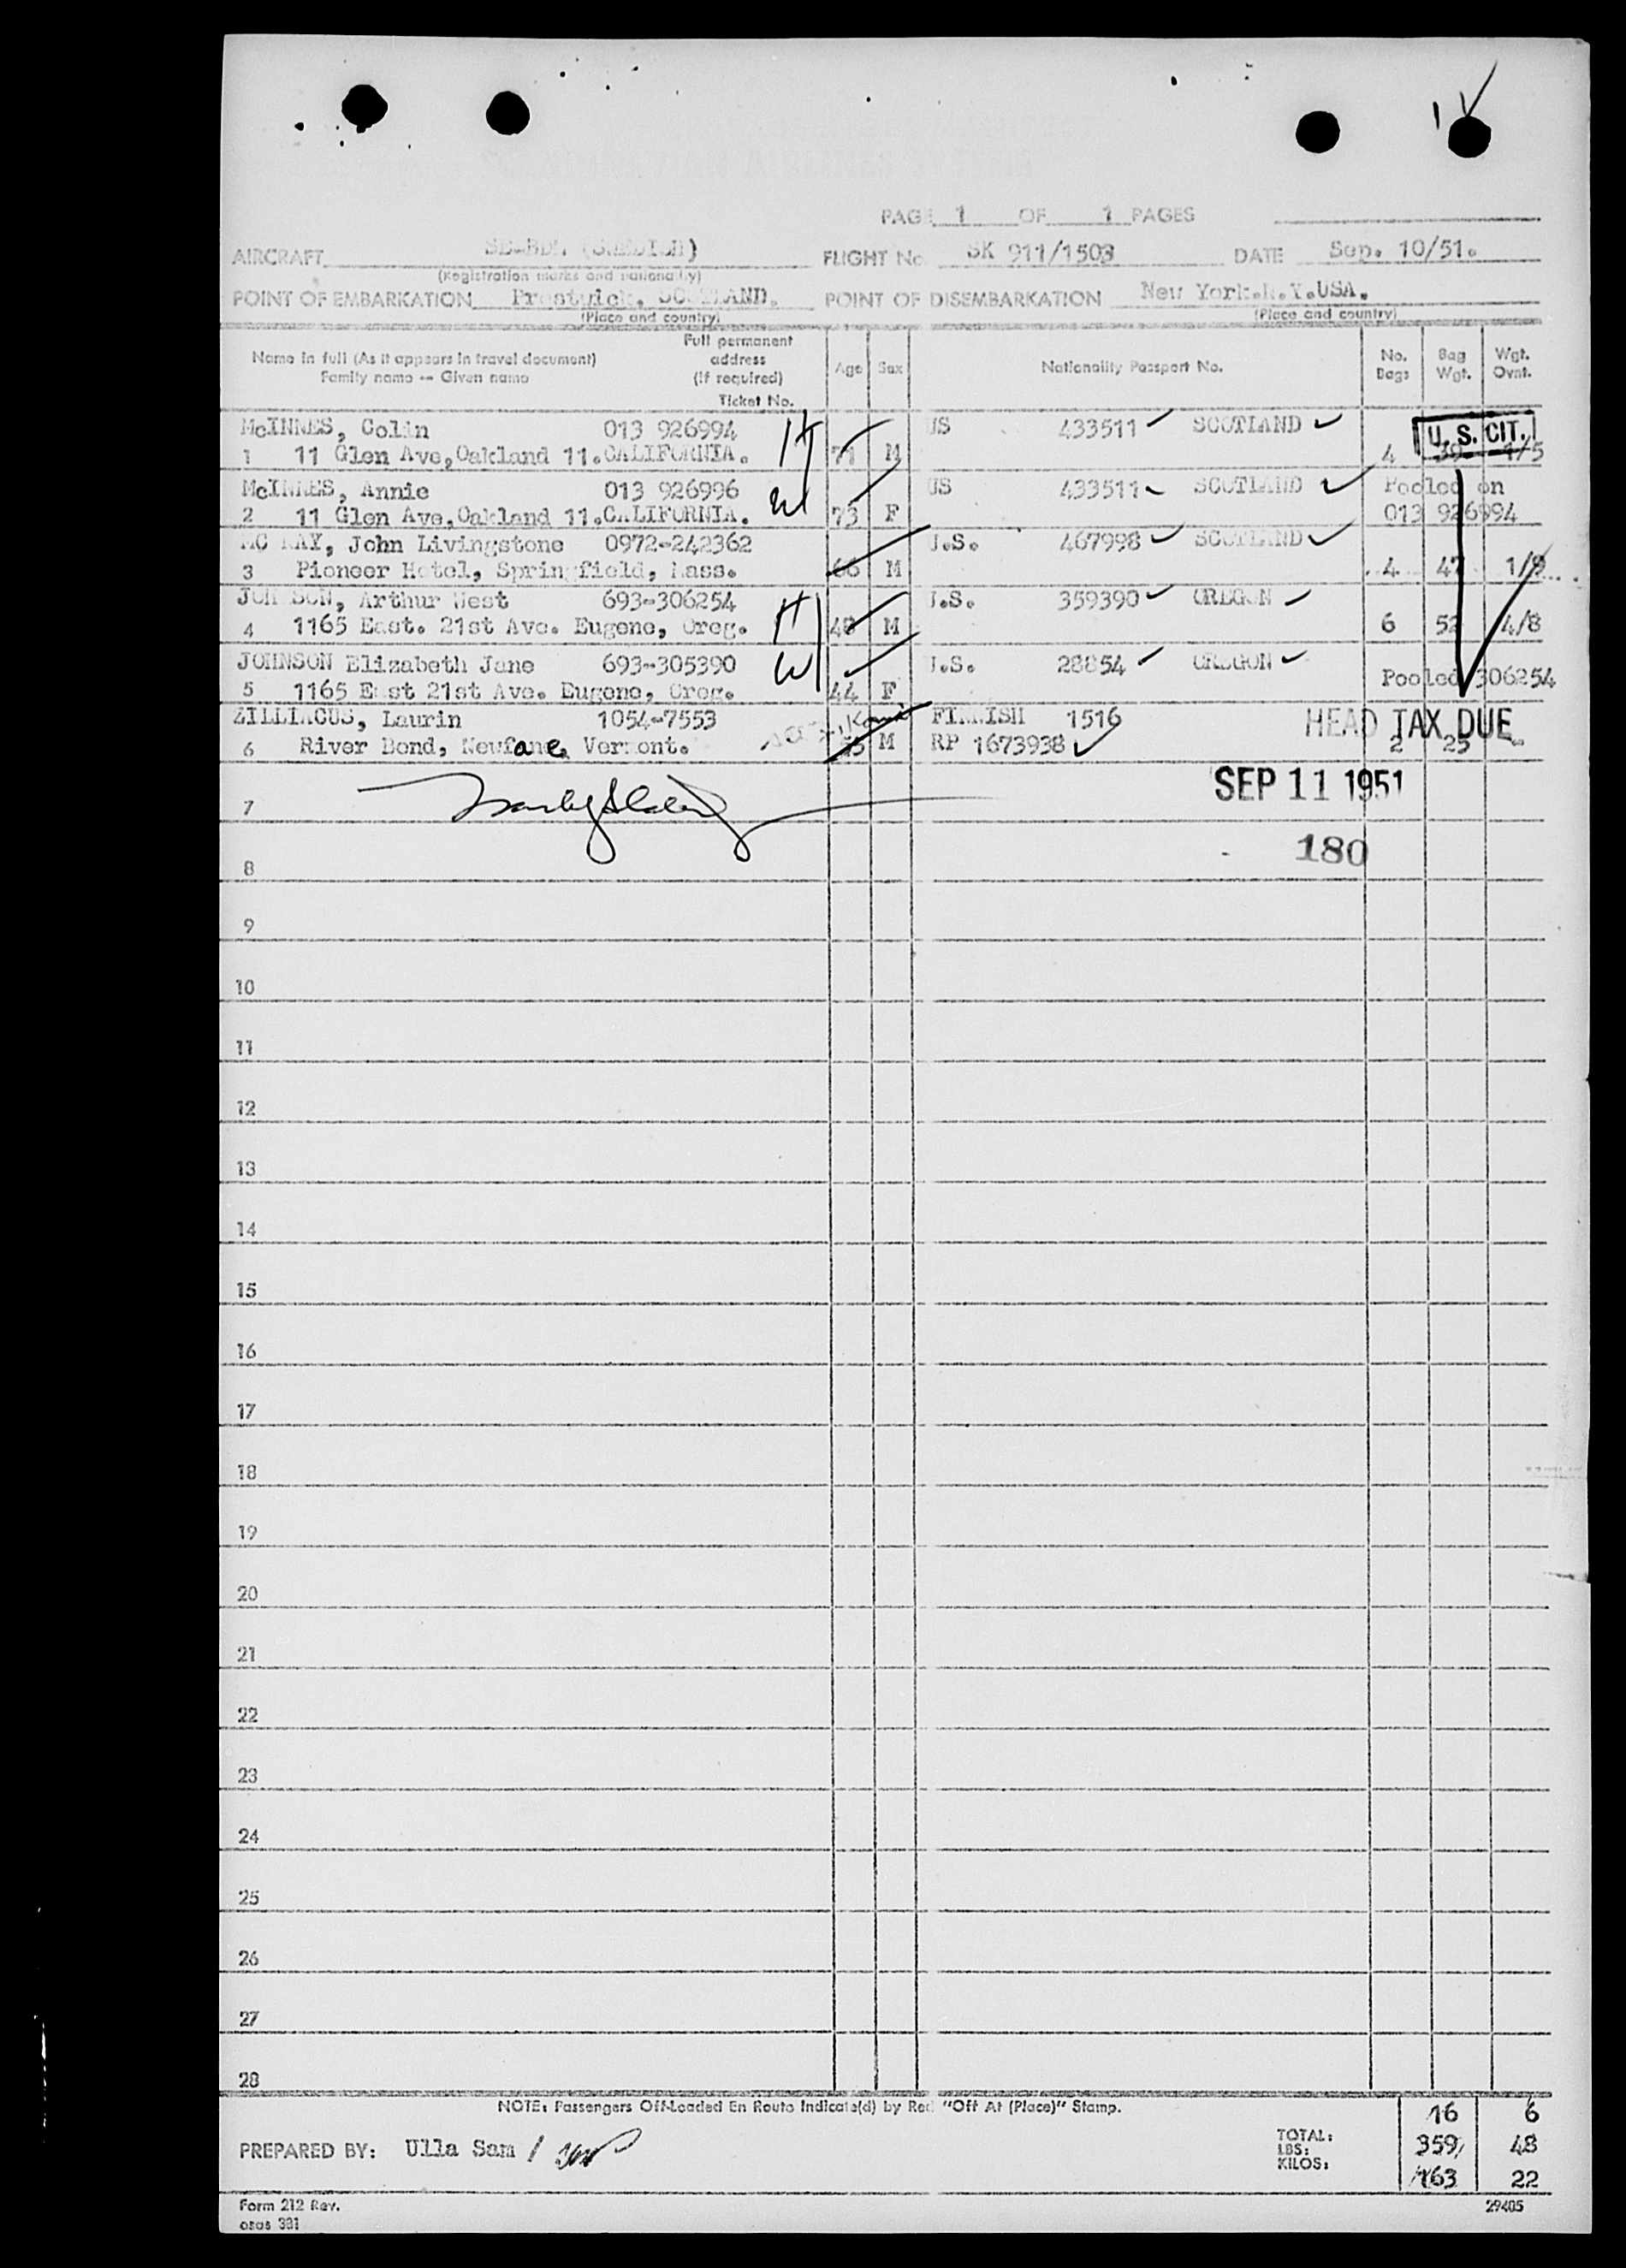 PAGE 1 OF 1 PAGES
AIRCRAFT (SWEDISH) FLIGHT No. SK 911/1503 DATE Sep. 10/51.
(Registration marks and nationality)
POINT OF EMBARKATION Prestwick, SCOTLAND. POINT OF DISEMBARKATION New York.N.Y.USA.
(Place and country) (Place and country)
Name in full (As it appears in travel document)
Family name -- Given name
Full permanent
address
(if required)
Ticket No.
Age Sex Nationality Passport No. No. Bags Bag Wgt. Wgt. Ovnt.
McINNES, Colin 013 926994 H US 433511 SCOTLAND U.S. CIT.
1 11 Glen Ave,Oakland 11.CALIFORNIA. 71 M 4 39 1/5
McINNES, Annie 013 926996 W US 433511 SCOTLAND Pooled on
2 11 Glen Ave,Oakland 11.CALIFORNIA. 73 F 013 926994
MC KAY, John Livingstone 0972-242362 U.S. 467998 SCOTLAND
3 Pioneer Hotel, Springfield, Mass. 66 M 4 47
JOHNSON, Arthur West 693-306254 H U.S. 359390 OREGON
4 1165 East. 21st Ave. Eugene, Oreg. 48 M 6 52 4/8
JOHNSON Elizabeth Jane 693-305390 W U.S. 28854 OREGON
5 1165 East 21st Ave. Eugene, Oreg. 44 F Pooled 306254
ZILLIACUS, Laurin 1054-7553 FINNISH 1516 HEAD TAX DUE
6 River Bend, Newfane, Vermont. M RP 1673938 2 25 -
SEP 11 1951
7
180
8
9
10
11
12
13
14
15
16
17
18
19
20
21
22
23
24
25
26
27
28
NOTE: Passengers Off-Loaded En Route Indicate(d) by Red "Off At (Place)" Stamp.
16 6
PREPARED BY: Ulla Sam /
TOTAL:
LBS: 359 48
KILOS: 163 22
Form 212 Rev. 29405
osas 381